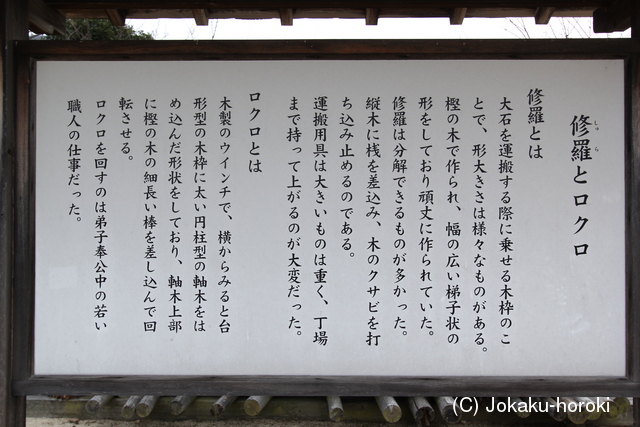 修羅とロクロ
しゅ ら
修羅とは
大石を運搬する際に乗せる木枠のこ
とで、形大きさは様々なものがある。
樫の木で作られ、幅の広い梯子状の
形をしており頑丈に作られていた。
修羅は分解できるものが多かった。
縦木に桟を差込み、木のクサビを打
ち込み止めるのである。
運搬用具は大きいものは重く、丁場
まで持って上がるのが大変だった。
ロクロとは
木製のウインチで、横からみると台
形型の木枠に太い円柱型の軸木をは
め込んだ形状をしており、軸木上部
に樫の木の細長い棒を差し込んで回
転させる。
ロクロを回すのは弟子奉公中の若い
職人の仕事だった。
(C) Jokaku-horoki